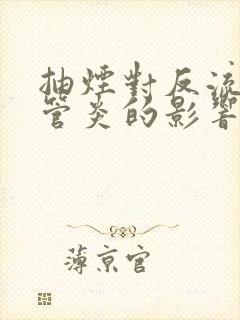 抽煙對反流
管炎的影響
薄京官